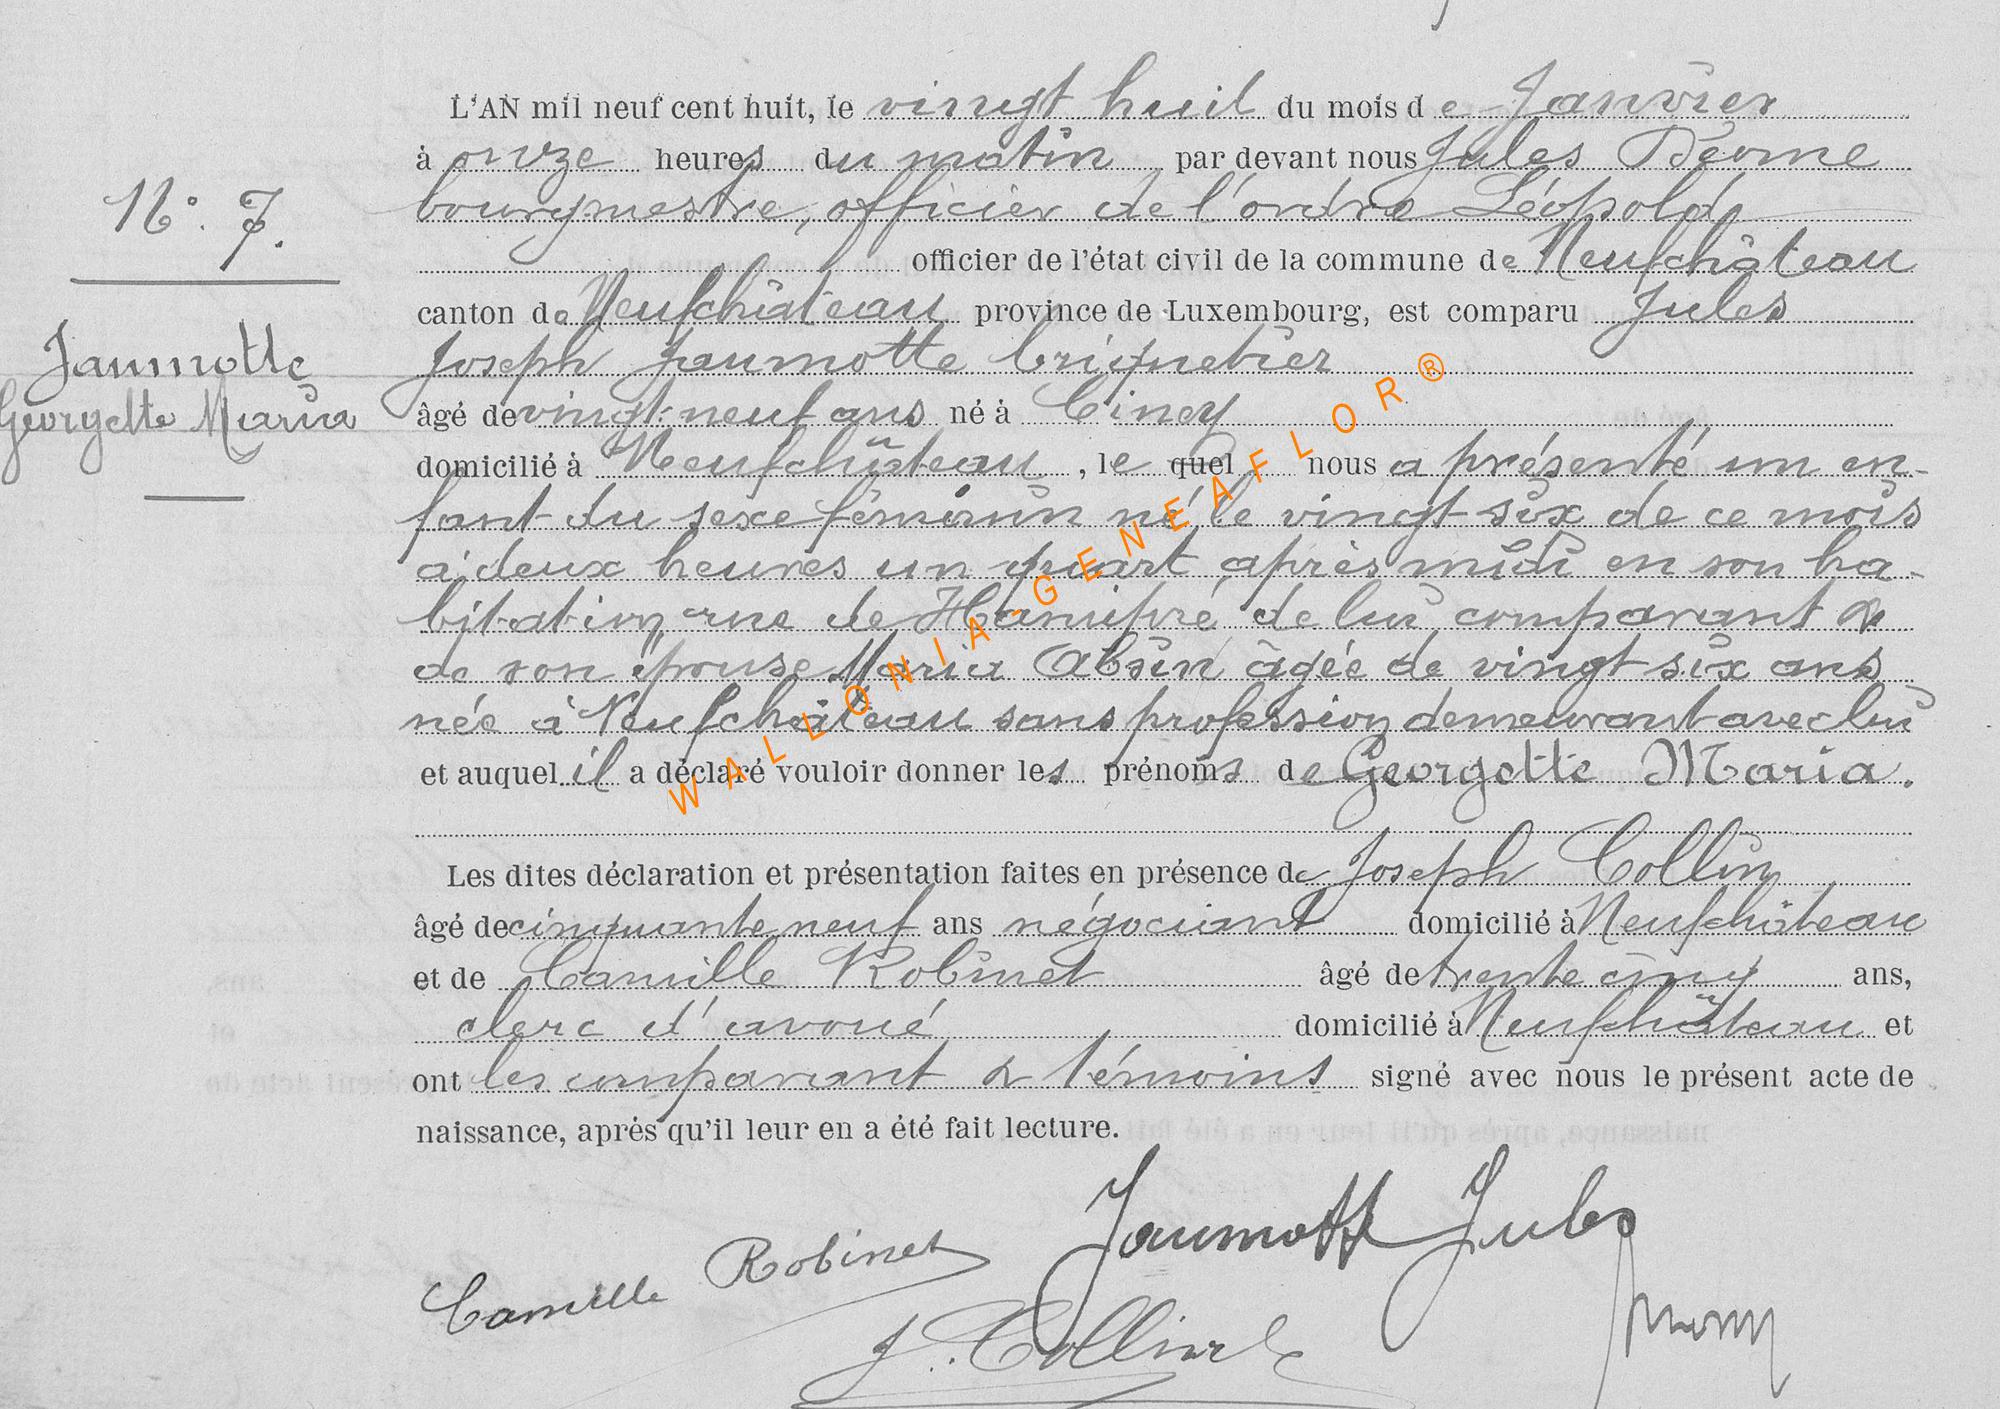 L'AN mil neuf cent huit, le vingt huit du mois de Janvier
à onze heures du matin par devant nous Jules
bourgmestre, officier de l'ordre Léopold,
officier de l'état civil de la commune de Neufchâteau
N° 7.
canton de Neufchâteau province de Luxembourg, est comparu Jules
Joseph Jaumotte briquetier
Jaumotte
Georgette Maria
âgé de vingt-neuf ans né à Ciney
domicilié à Neufchâteau, le quel nous a présenté un en-
fant du sexe féminin né le vingt-six de ce mois
à deux heures un quart après midi en son ha-
bitation rue de Hamipré de lui comparant &
de son épouse Maria Absin âgée de vingt six ans
née à Neufchâteau sans profession demeurant avec lui
et auquel il a déclaré vouloir donner les prénoms de Georgette Maria.
Les dites déclaration et présentation faites en présence de Joseph Collin
âgé de cinquante neuf ans négociant domicilié à Neufchâteau
et de Camille Robinet âgé de trente cinq ans,
clerc d'avoué domicilié à Neufchâteau et
ont les comparant & témoins signé avec nous le présent acte de
naissance, après qu'il leur en a été fait lecture.
Jaumotte Jules
Camille Robinet
J. Collin
WALLONIA-GENEAFLOR®